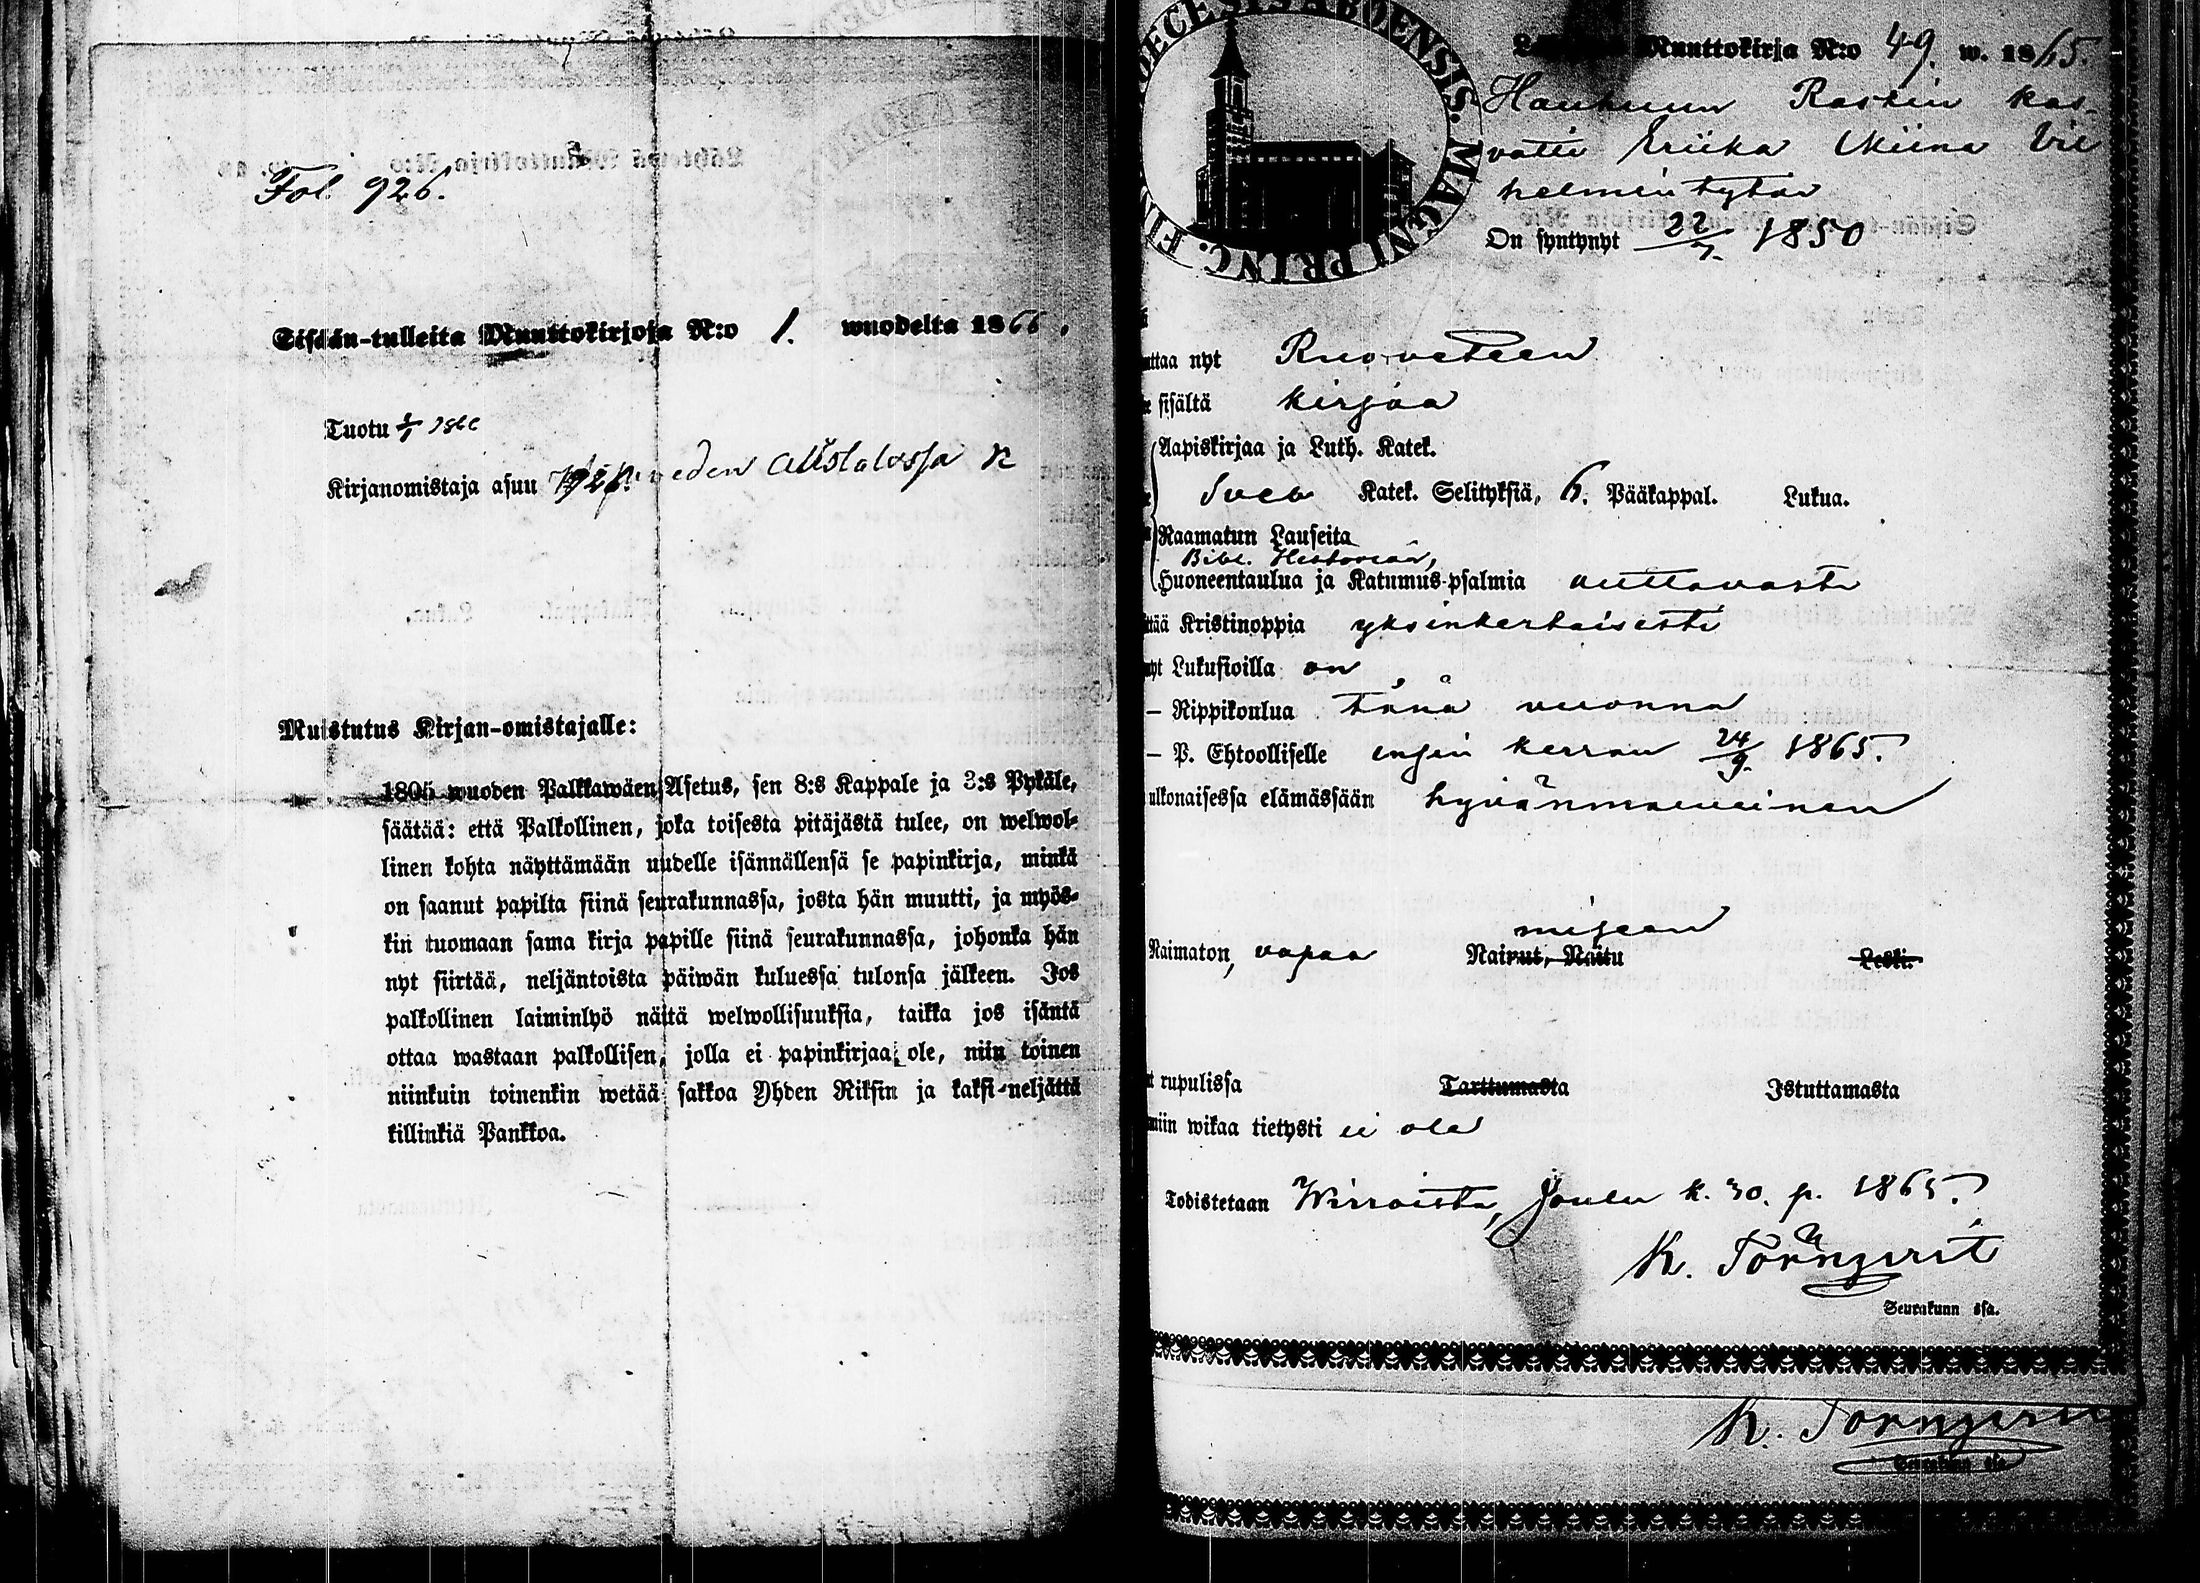 Fol. 926.
Sisään-tulleita Muuttokirjoja N:o 1. wuodelta 1866.
Tuotu 1/1 1866
Kirjanomistaja asuu
Muistutus Kirjan-omistajalle:
1805 wuoden Palkkawäen Asetus, sen 8:s Kappale ja 3:s Pykäle,
säätää: että Palkollinen, joka toisesta pitäjästä tulee, on welwol-
linen kohta näyttämään uudelle isännällensä se papinkirja, minkä
on saanut papilta siinä seurakunnassa, josta hän muutti, ja myös-
kin tuomaan sama kirja papille siinä seurakunnassa, johonka hän
nyt siirtää, neljäntoista päiwän kuluessa tulonsa jälkeen. Jos
palkollinen laiminlyö näitä welwollisuuksia, taikka jos isäntä
ottaa wastaan palkollisen, jolla ei papinkirjaa ole, niin toinen
niinkuin toinenkin wetää sakkoa Yhden Riksin ja kaksi-neljättä
killinkiä Pankkoa.
DECESIS ABOENSIS. MAGNI PRINC. FI
Muuttokirja N:o 49. w. 1865.
Rastin kas-
vatti Eriika Miina Vil
helmintytär
On syntynyt 22/7. 1850
uttaa nyt Ruoveteen
sisältä kirjaa
Aapiskirjaa ja Luth. Katek.
Sveb Katek. Selityksiä, 6. Pääkappal. Lukua.
Raamatun Lauseita
Bibl. Historian,
Huoneentaulua ja Katumus-psalmia auttavasti
ttää Kristinoppia yksinkertaisesti
nyt Lukusioilla on
— Rippikoulua tänä vuonna
— P. Ehtoolliselle ensin kerran 24/9. 1865.
ulkonaisessa elämässään hyvänmaineinen
Naimaton, vapaa Naimut, Naitu Leski.
t rupulissa Tarttumasta Istuttamasta
miin wikaa tietysti ei ole
Todistetaan Wirroista, Joulu k. 30. p. 1865.
K. Törnqvist
Seurakunn ssa.
K. Törnqvist